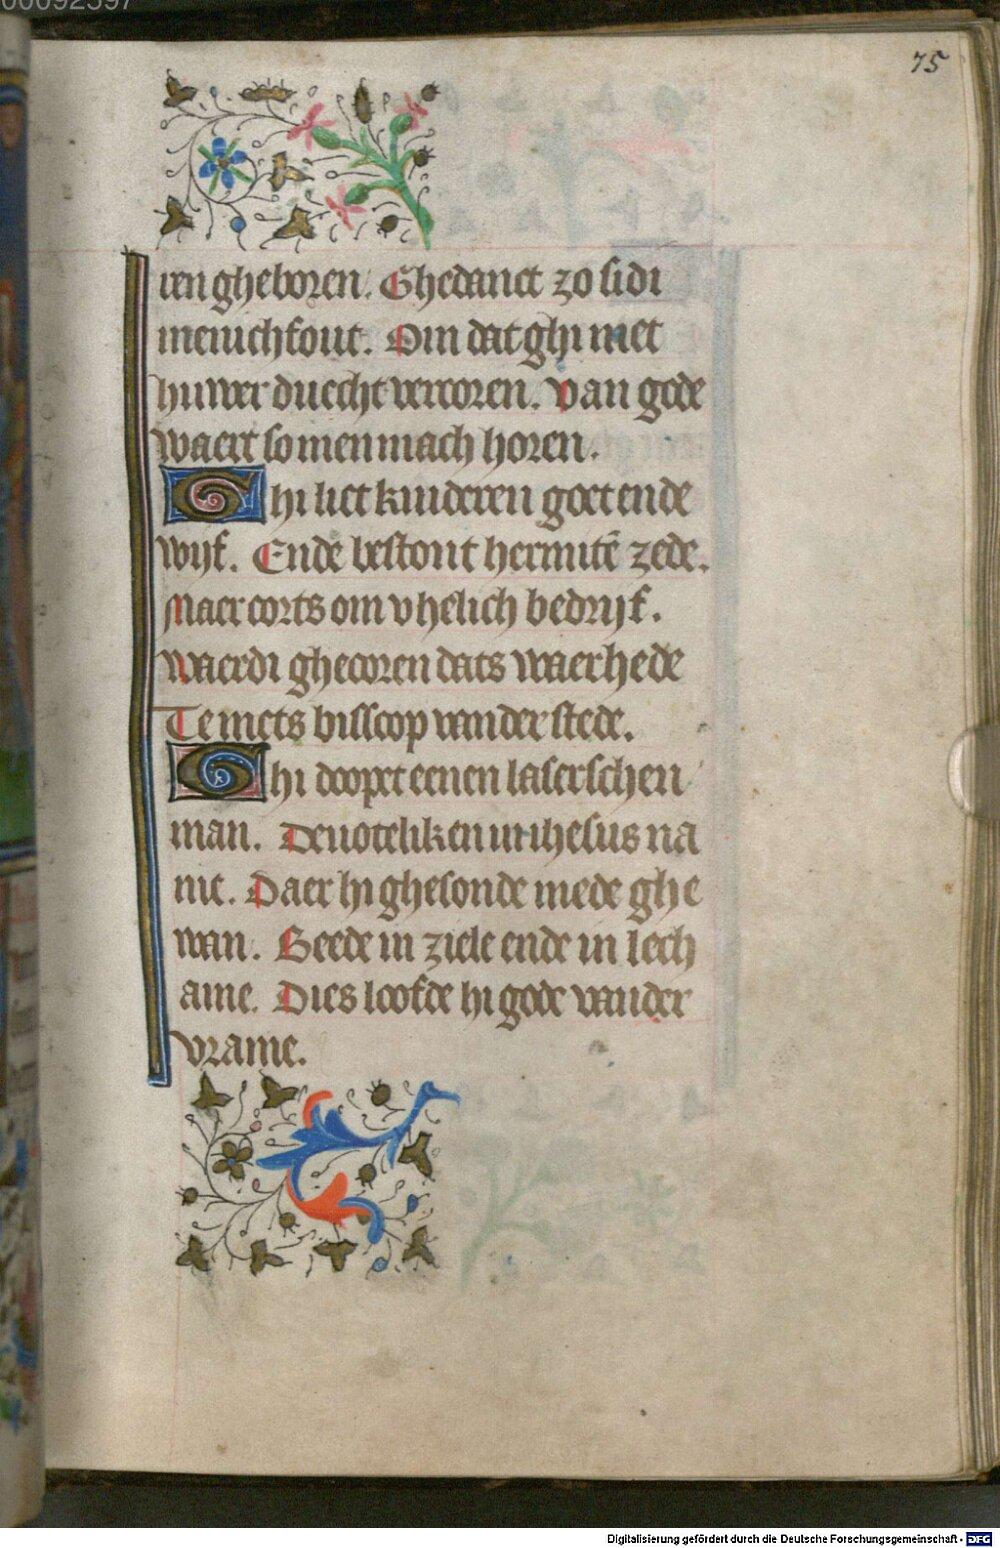 00092597
75
ren gheboren. Ghedanct zo sidi
menichfout. Om dat ghi met
huwer duecht vercoren. Van gode
waert so men mach horen.
Ghi liet kinderen goet ende
wijf. Ende bestont hermitē zede.
Maer corts om v helich bedrijf.
waerdi ghecoren dats waerhede
Te mets bisscop vander stede.
Ghi doopet eenen laserschen
man. Deuotelik en in ihesus na
me. Daer hi ghesonde mede ghe
wan. Beede in ziele ende in lech
ame. Dies loofde hi gode vander
vrame.
Digitalisierung gefördert durch die Deutsche Forschungsgemeinschaft - DFG